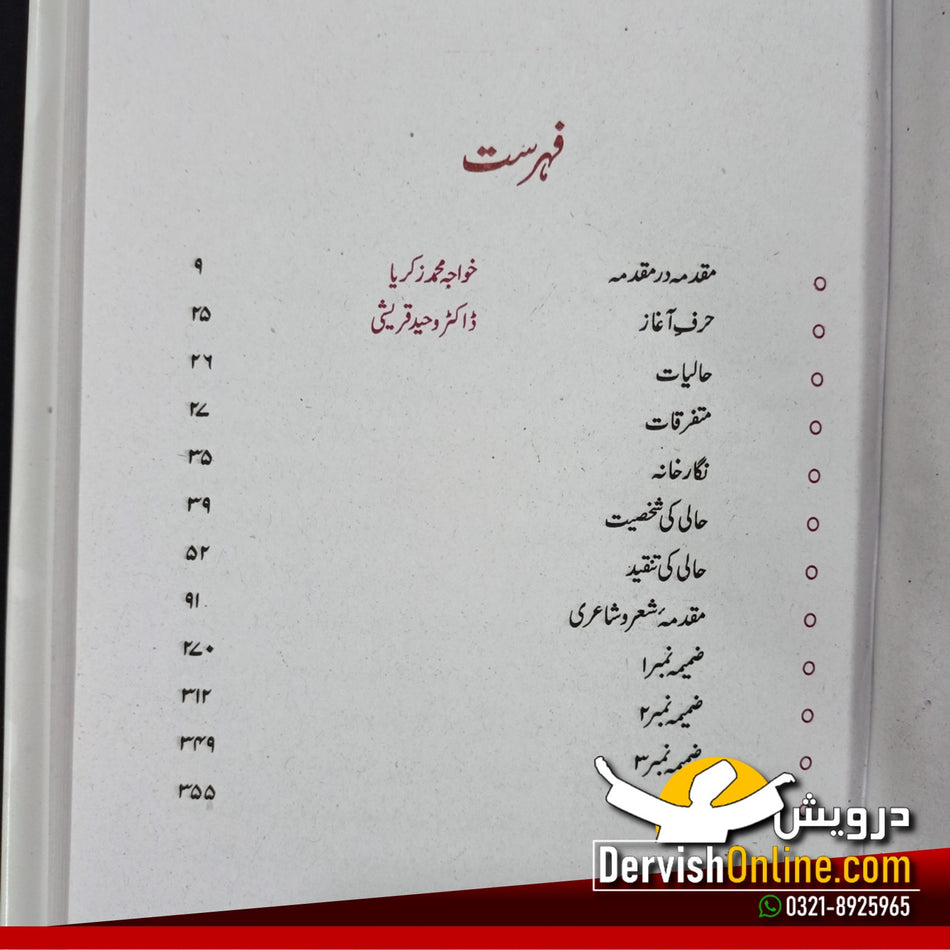 فہرست
مقدمہ در مقدمہ خواجہ محمد زکریا ۹
حرفِ آغاز ڈاکٹر وحید قریشی ۲۵
حالیات ۲۶
متفرقات ۲۷
نگارخانہ ۳۵
حالی کی شخصیت ۳۹
حالی کی تنقید ۵۲
مقدمۂ شعر و شاعری ۹۱
ضمیمہ نمبر ۱ ۲۷۰
ضمیمہ نمبر ۲ ۳۱۲
ضمیمہ نمبر ۳ ۳۴۹
۳۵۵
درویش
DervishOnline.com
0321-8925965